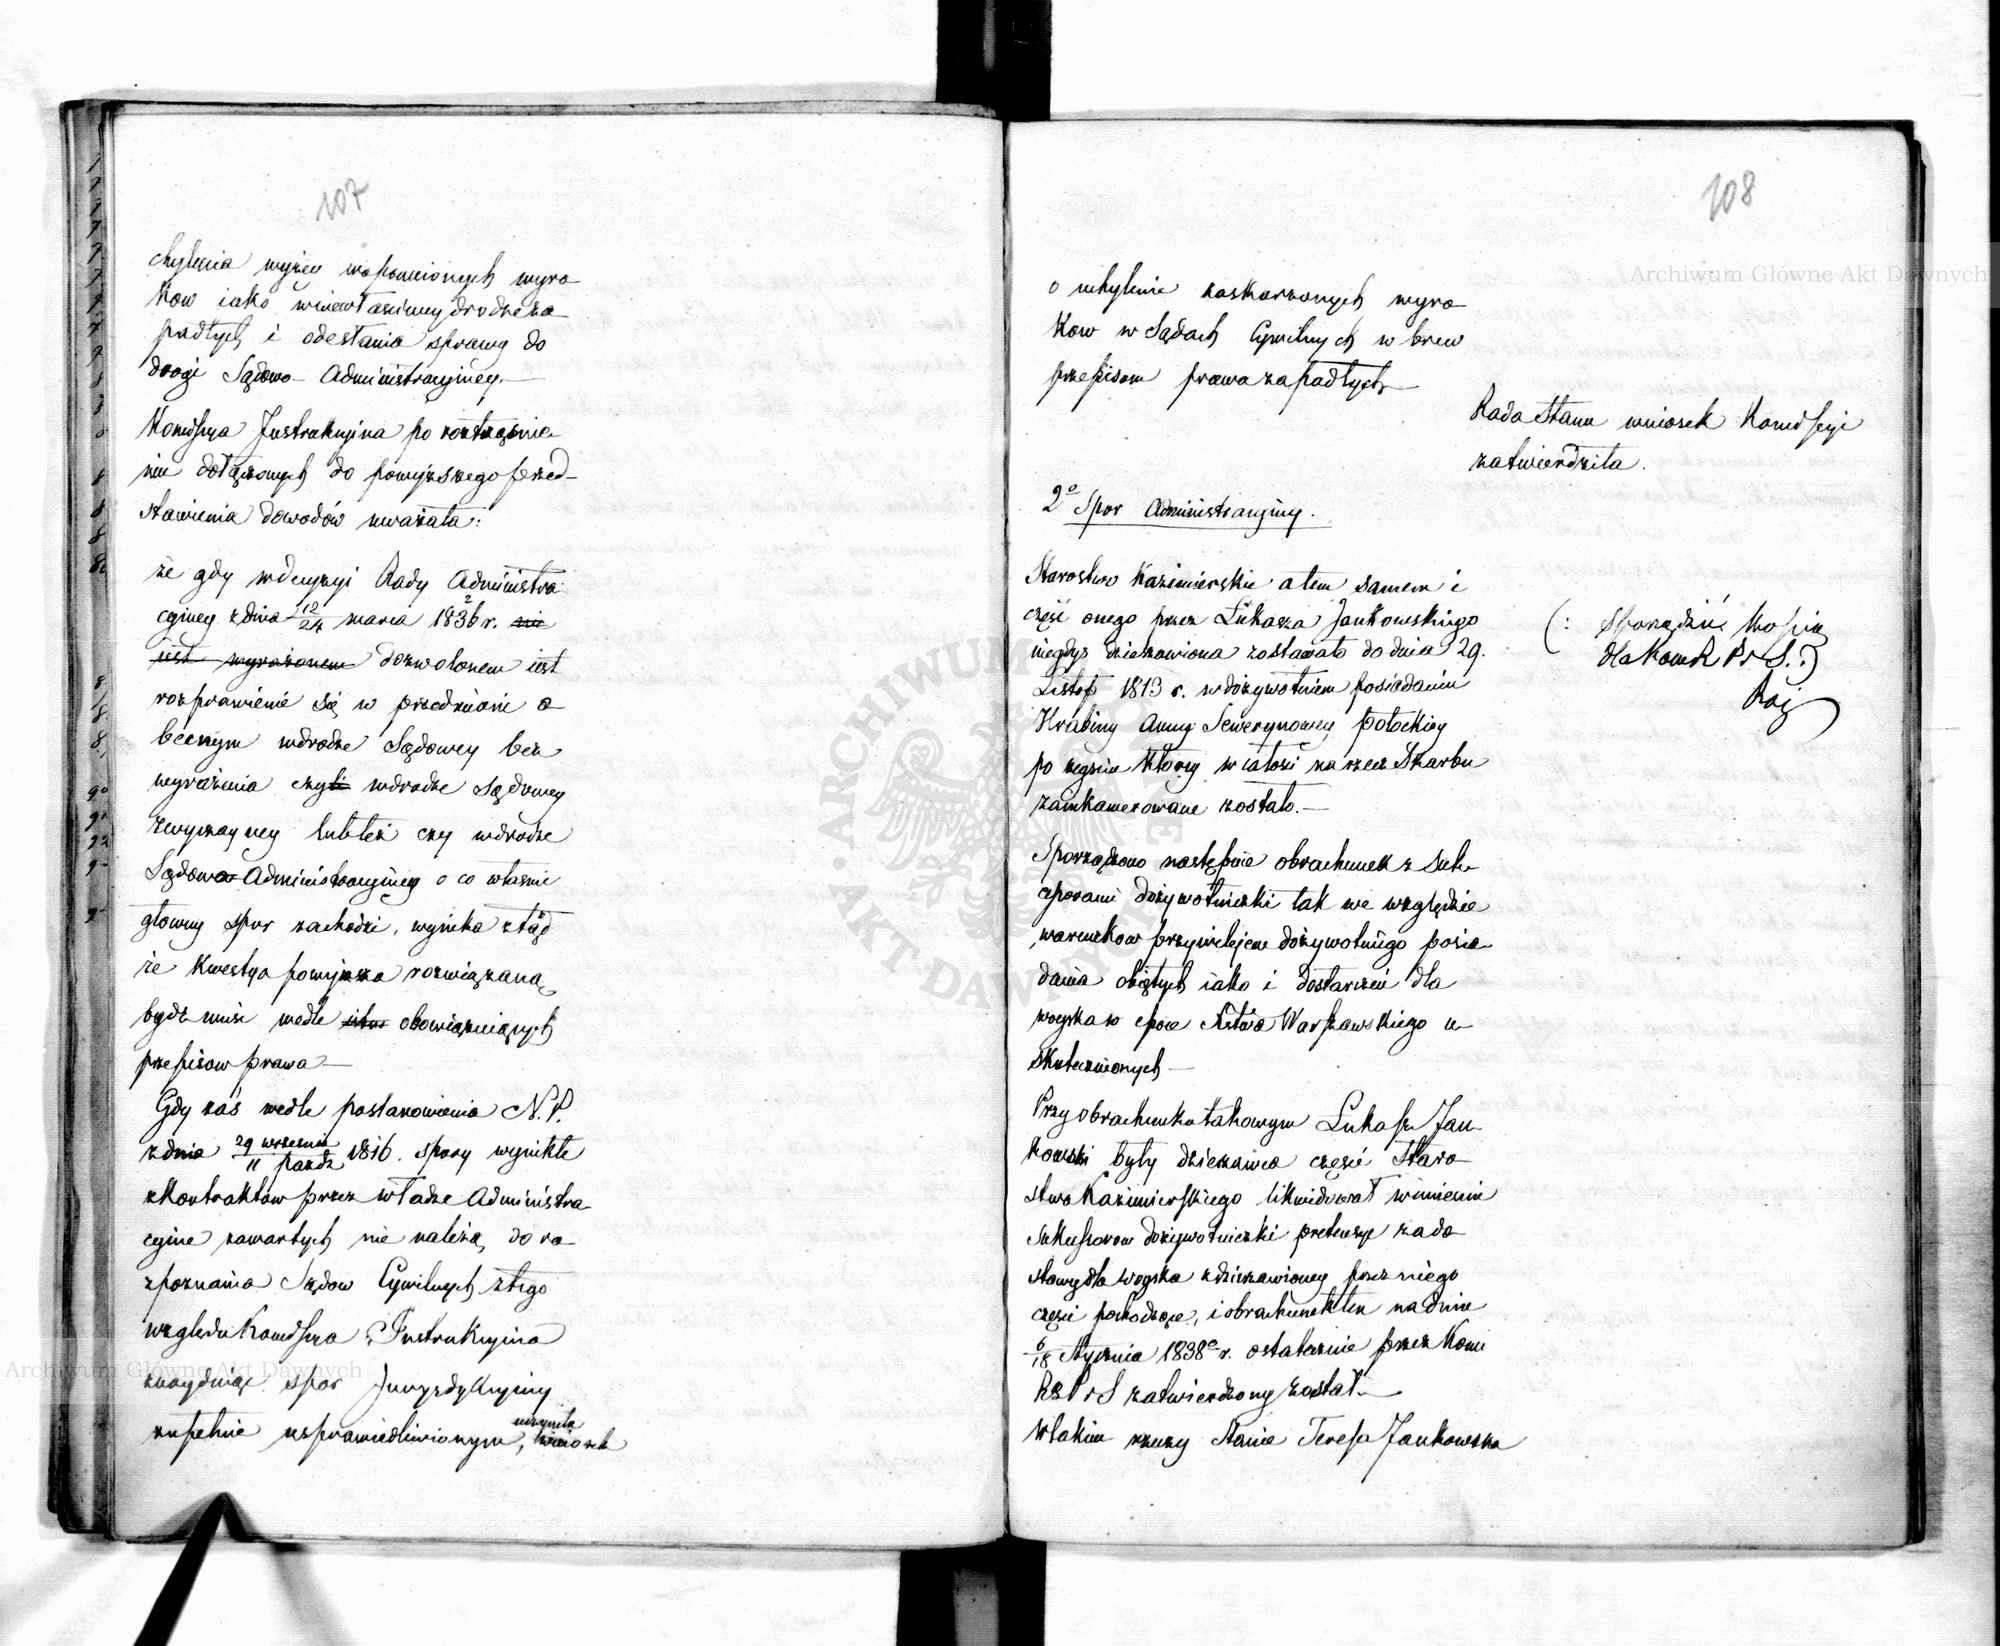 107
chylenia wyżey wspomnionych wyro
kow iako w niewłaściwey drodze za
padłych i odesłania sprawy do
drogi Sądowo Administracyiney.
Kommissya Instrukcyina po roztrząśnie
niu dołączonych do powyższego przed
stawienia dowodów uważała:
że gdy w decyzyi Rady Administra
cyiney z dnia 12/24 marca 1836 r. nie
iest wyrażonem dozwolonem iest
rozprawienie się w przedmiocie o
becnym w drodze Sądowey bez
wyrażenia czyli w drodze Sądowey
zwyczayney lub też czy w drodze
Sądowo Administracyiney o co właśnie
główny spor zachodzi, wynika ztąd
że kwestya powyższa rozwiązaną
bydź musi wedle obowiązuiących
przepisow prawa
Gdy zaś wedle postanowienia N. P.
z dnia 29 wrzesnia/11 pazdz 1816. spory wynikłe
z kontraktów przez władze Administra
cyine zawartych nie należą do ro
zpoznania Sądow Cywilnych z tego
względu Kommissya Instrukcyina
znayduiąc spor Juryzdykcyiny
zupełnie usprawiedliwionym, uczyniła wniosek
108
o uchylenie zaskarżonych wyro
kow w Sądach Cywilnych w brew
przepisom prawa zapadłych
Rada Stanu wniosek Kommissyi
zatwierdziła.
2o Spor Administracyiny.
Starostwo Kazimierskie a tem samem i
część onego przez Łukasza Jankowskiego
niegdyś dzierżawiona zostawało do dnia 29.
Listop 1813 r. w dożywotniem posiadaniu
Hrabiny Anny Sewerynowey Potockiey
po zgonie ktorey w całości na rzecz Skarbu
zainkamerowane zostało.
(: Sporządzić kopią
dla Kom R P i S. :)
Sporządzono następnie obrachunek z Suk
cessorami dożywotniczki tak we względzie
warunkow przywilejem dożywotniego posia
dania obiętych iako i dostarczeń dla
woyska w epoce Xstwa Warszawskiego u
skutecznionych
Przy obrachunku takowym Łukasz Jan
kowski były dzierżawca części Staro
stwa Kazimierskiego likwidował w imieniu
Sukcessorow dożywotniczki pretensye za do
stawy dla woyska z dzierżawioney przez niego
części pochodzące, i obrachunek ten na dniu
6/18 Stycznia 1838o r. ostatecznie przez Kom
R P i S zatwierdzony został.
W takim rzeczy stanie Teressa Jankowska
Archiwum Główne Akt Dawnych
Archiwum Główne Akt Dawnych
ARCHIWUM GŁÓWNE AKT DAWNYCH